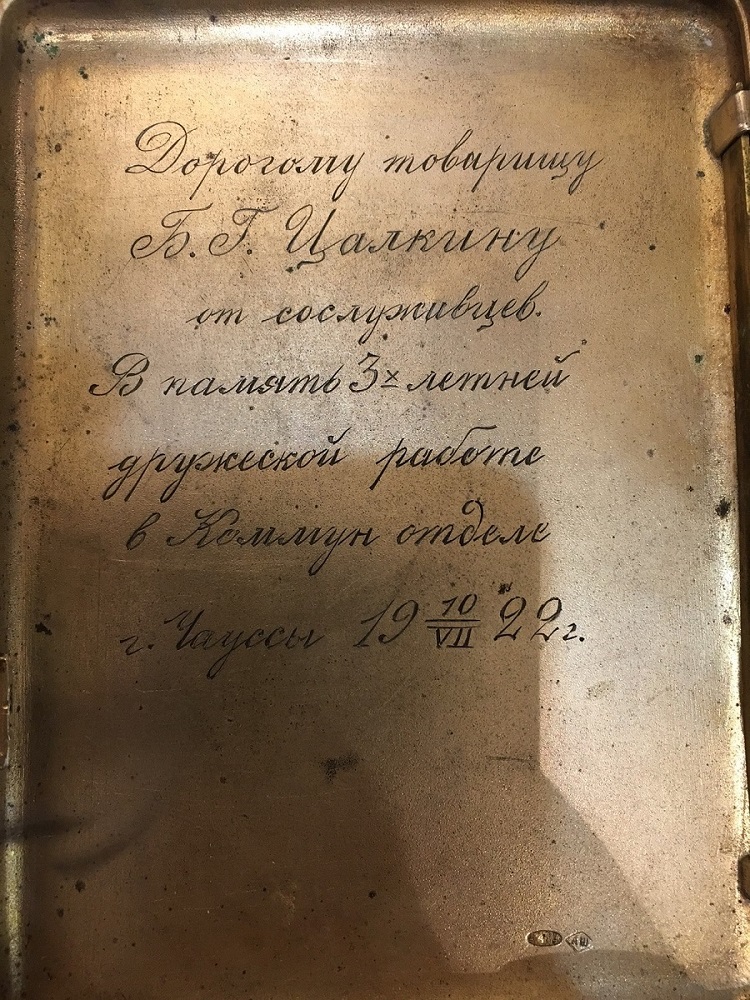 Дорогому товарищу
Б. Г. Цалкину
от сослуживцев.
В память 3х летней
дружеской работе
в Коммун отделе
г. Чауссы 19 10/VII 22 г.